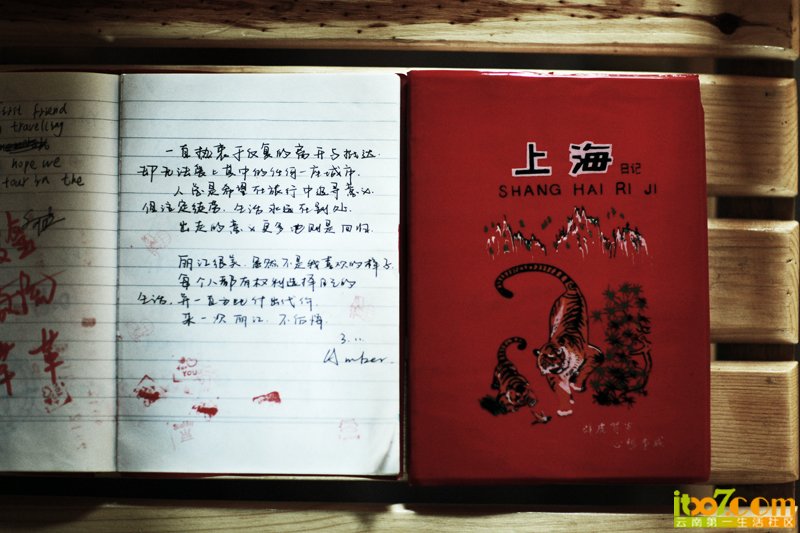 friend
traveling
hope we
tour in the
一直执衷于反复的离开与抵达.
却无法爱上其中的任何一座城市.
人总是希望在旅行中追寻意义.
但注定徒劳. 生活永远在别处.
出走的意义更多也则是回归.
丽江很美. 虽然不是我喜欢的样子.
每个人都有权利选择自己的
生活. 并一直为此付出代价.
来一次丽江. 不后悔
3.11
Amber.
YOU
上海 日记
SHANG HAI RI JI
心想事成
itbo7com
云南第一生活社区